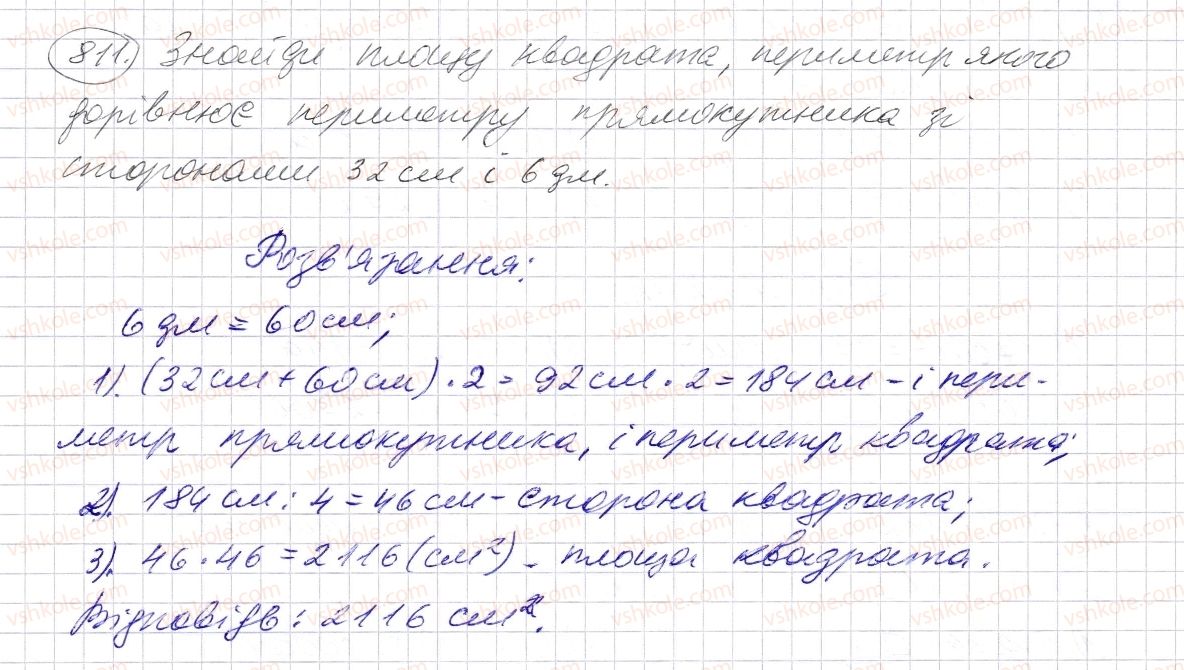 811. Знайди площу квадрата, периметр якого
дорівнює периметру прямокутника зі
сторонами 32 см і 6 дм.
Розв'язання:
6 дм = 60 см;
1). (32 см + 60 см) · 2 = 92 см · 2 = 184 см - і пери-
метр прямокутника, і периметр квадрата;
2). 184 см : 4 = 46 см - сторона квадрата;
3). 46 · 46 = 2116 (см²) - площа квадрата.
Відповідь: 2116 см².